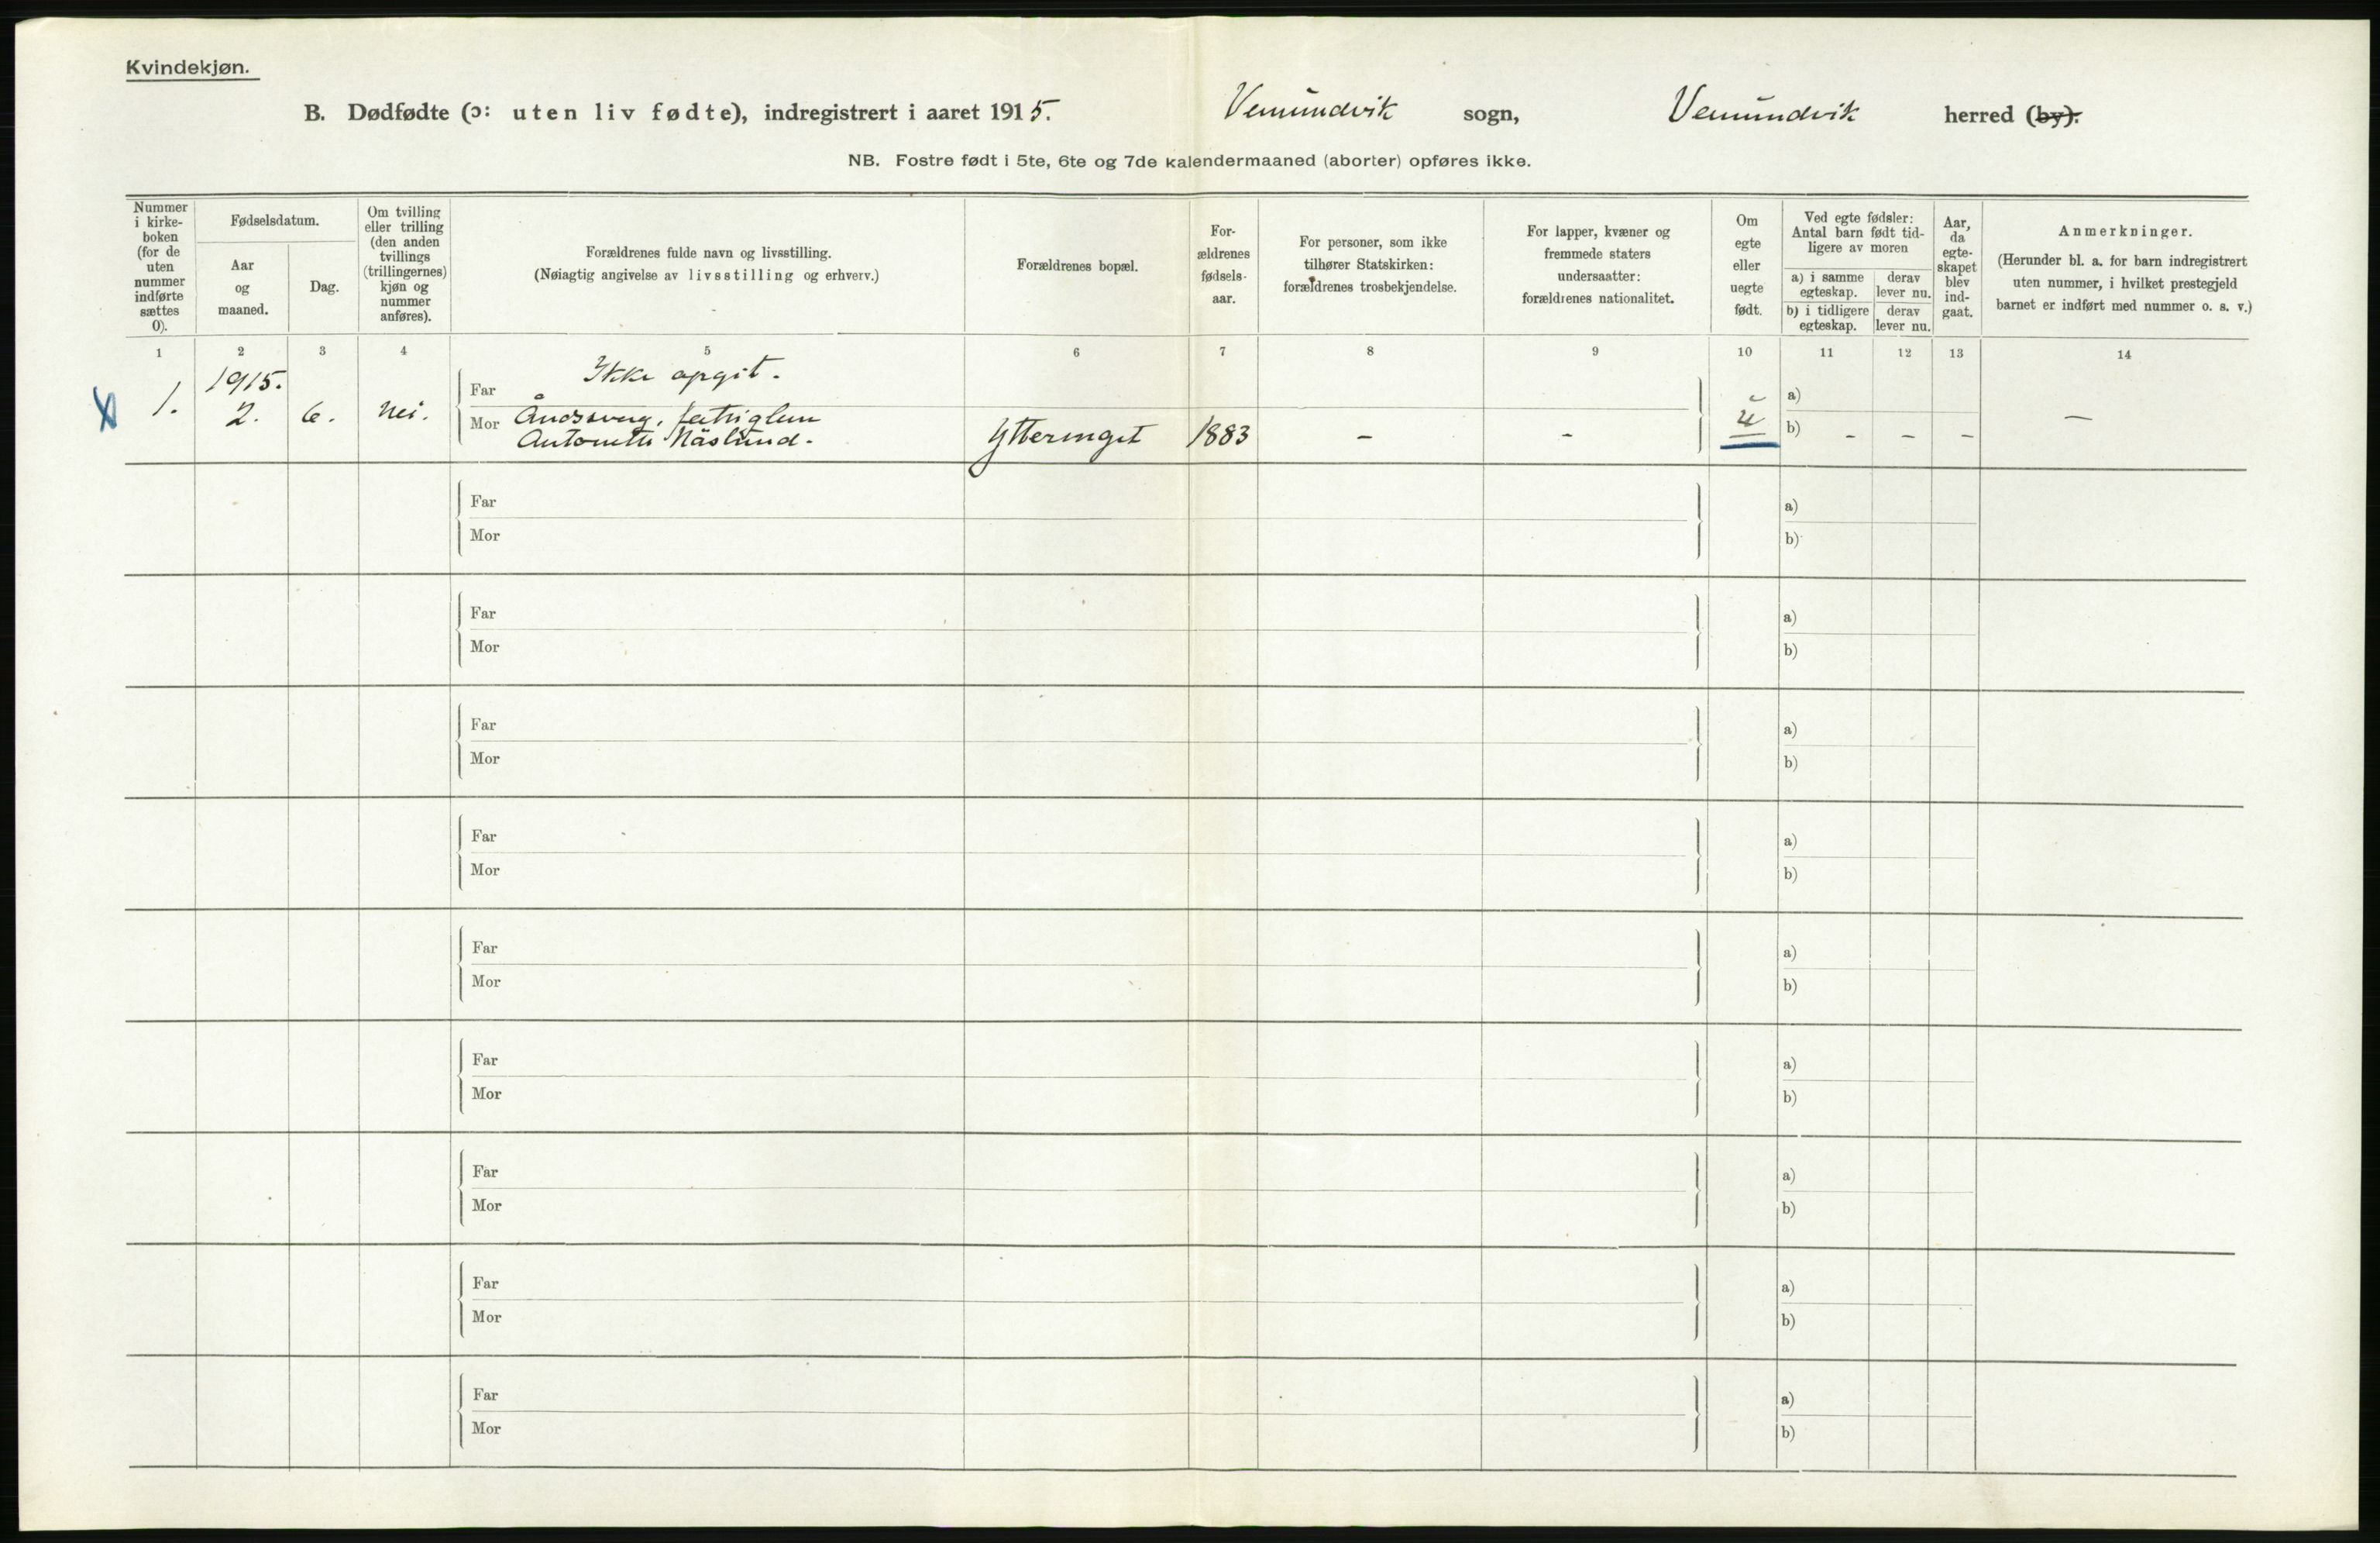 Kvindekjøn.
B. Dødfødte (ɔ: uten liv fødte), indregistrert i aaret 1915. Vemundvik sogn, Vemundvik herred (by).
NB. Fostre født i 5te, 6te og 7de kalendermaaned (aborter) opføres ikke.
Nummer
i kirke-
boken
(for de
uten
nummer
indførte
sættes
0).
Fødselsdatum.
Aar
og
maaned.
Dag.
Om tvilling
eller trilling
(den anden
tvillings
(trillingernes)
kjøn og
nummer
anføres).
Forældrenes fulde navn og livsstilling.
(Nøiagtig angivelse av livsstilling og erhverv.)
Forældrenes bopæl.
For-
ældrenes
fødsels-
aar.
For personer, som ikke
tilhører Statskirken:
forældrenes trosbekjendelse.
For lapper, kvæner og
fremmede staters
undersaatter:
forældrenes nationalitet.
Om
egte
eller
uegte
født.
Ved egte fødsler:
Antal barn født tid-
ligere av moren
a) i samme
egteskap.
derav
lever nu.
b) i tidligere
egteskap.
derav
lever nu.
Aar,
da
egte-
skapet
blev
ind-
gaat.
Anmerkninger.
(Herunder bl. a. for barn indregistrert
uten nummer, i hvilket prestegjeld
barnet er indført med nummer o. s. v.)
1 2 3 4 5 6 7 8 9 10 11 12 13 14
1915.
Far Ikke opgit.
a)
1. 2. 6. Nei.
Mor Åndssvag,
Antonette Näslund. 1883 - - u b) - - - -
Far a)
Mor b)
Far a)
Mor b)
Far a)
Mor b)
Far a)
Mor b)
Far a)
Mor b)
Far a)
Mor b)
Far a)
Mor b)
Far a)
Mor b)
Far a)
Mor b)